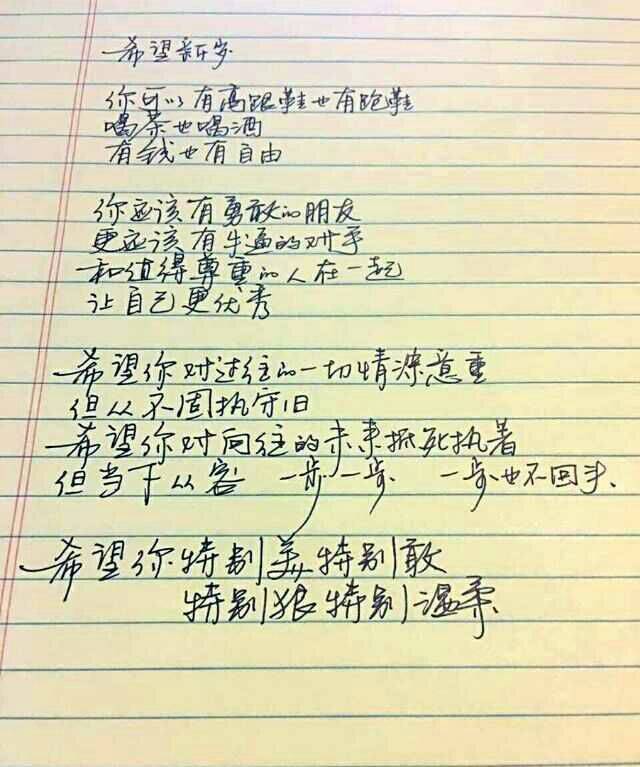 希望新年岁
你可以有高跟鞋也有跑鞋
喝茶也喝酒
有钱也有自由
你应该有勇敢的朋友
更应该有牛逼的对手
和值得尊重的人在一起
让自己更优秀
希望你对过往的一切情深意重
但从不固执守旧
希望你对向往的未来抵死执着
但当下从容 一步一步、 一步也不回头、
希望你特别美特别敢
特别狠特别温柔、